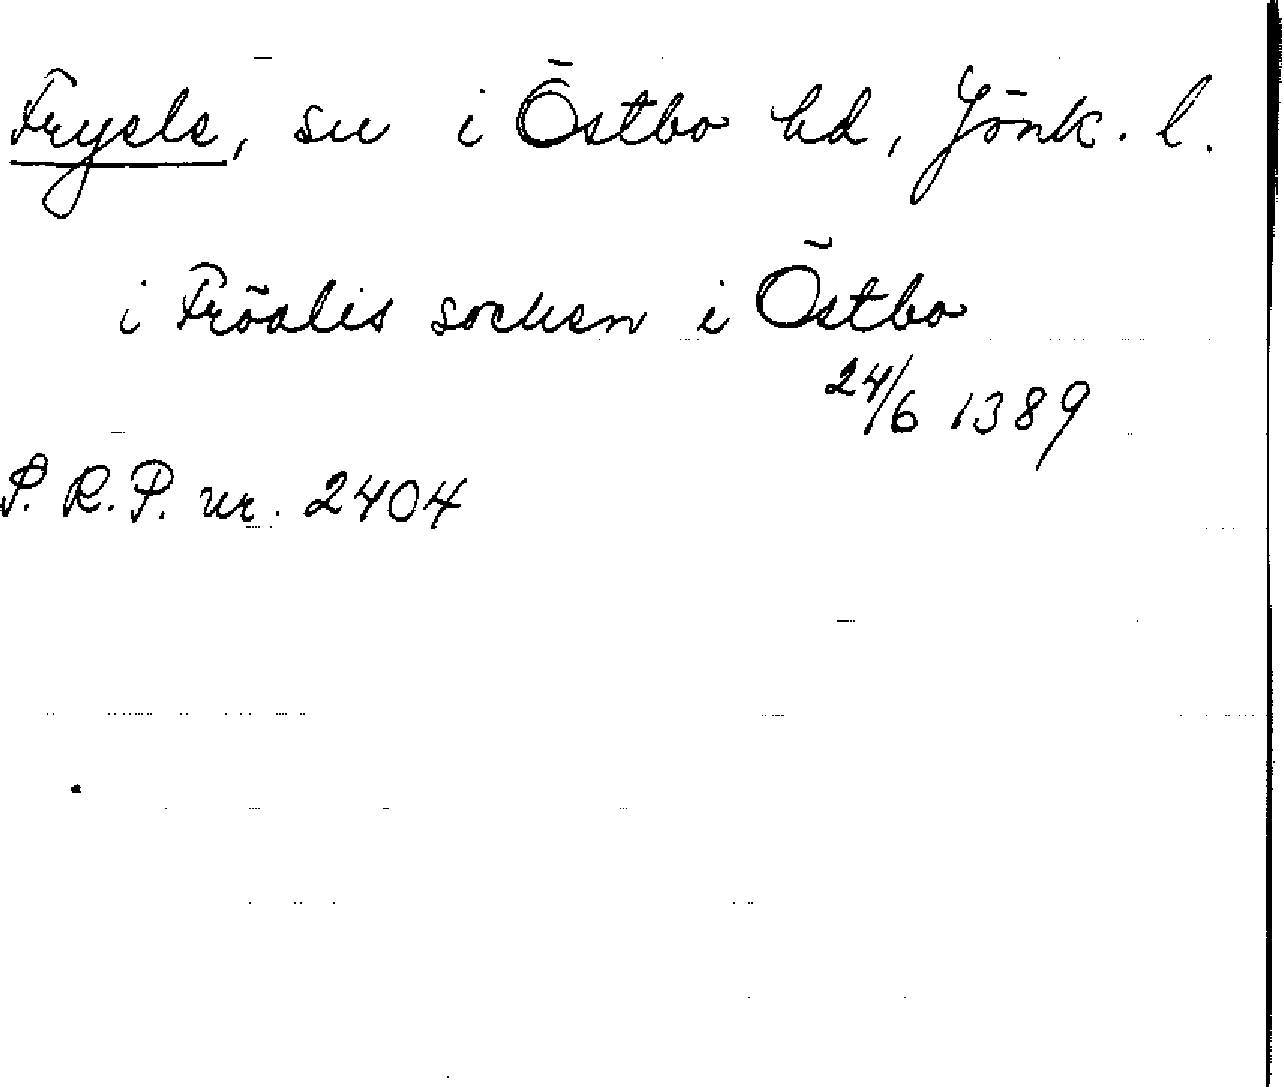 Fryele, sn i Östbo hd, Jönk. l.
i Fröalis socken i Östbo
24/6 1389
P. R. P. nr. 2404